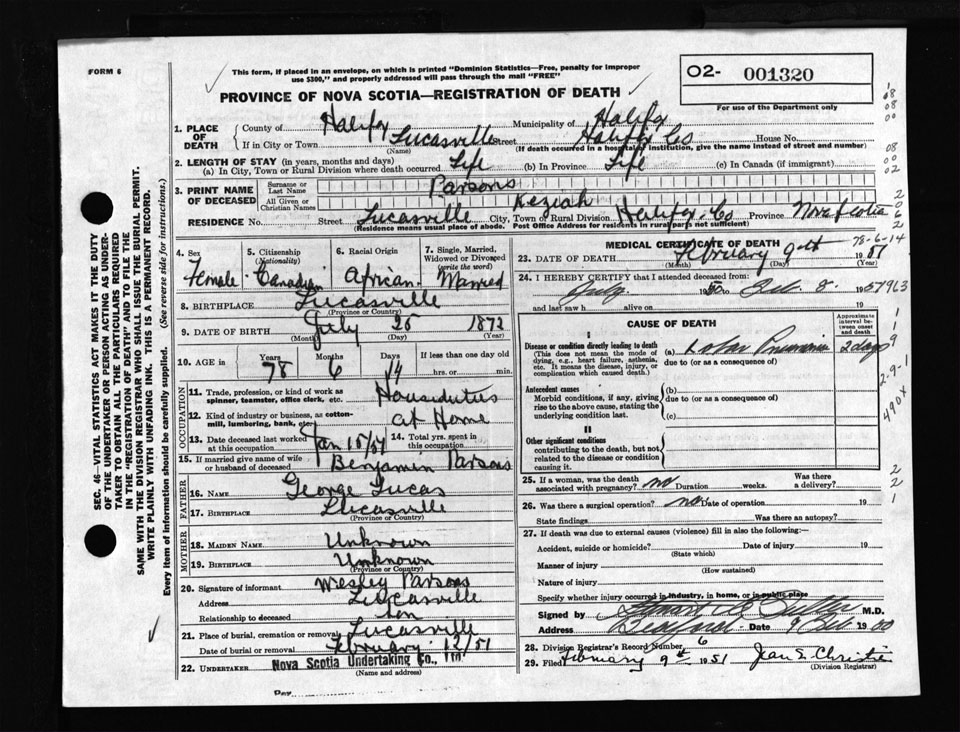 FORM 6
This form, if placed in an envelope, on which is printed "Dominion Statistics—Free, penalty for improper
use $300," and properly addressed will pass through the mail "FREE"
O2- 001320
For use of the Department only
PROVINCE OF NOVA SCOTIA—REGISTRATION OF DEATH
1. PLACE OF DEATH
County of Halifax Municipality of Halifax
If in City or Town Lucasville Street Halifax Co House No.
(Name) (If death occurred in a hospital or institution, give the name instead of street and number)
2. LENGTH OF STAY (in years, months and days)
(a) In City, Town or Rural Division where death occurred Life (b) In Province Life (c) In Canada (if immigrant)
3. PRINT NAME OF DECEASED
Surname or Last Name Parsons
All Given or Christian Names Keziah
RESIDENCE No. Street Lucasville City, Town or Rural Division Halifax Co Province Nova Scotia
(Residence means usual place of abode. Post Office Address for residents in rural parts not sufficient)
4. Sex Female
5. Citizenship (Nationality) Canadian
6. Racial Origin African
7. Single, Married, Widowed or Divorced (write the word) Married
8. BIRTHPLACE Lucasville
(Province or Country)
9. DATE OF BIRTH July 25 1872
(Month) (Day) (Year)
10. AGE in Years 78 Months 6 Days 14 If less than one day old hrs. or min.
OCCUPATION
11. Trade, profession, or kind of work as spinner, teamster, office clerk, etc. Houseduties
12. Kind of industry or business, as cotton-mill, lumbering, bank, etc. at Home
13. Date deceased last worked at this occupation Jan 15/51
14. Total yrs. spent in this occupation
15. If married give name of wife or husband of deceased Benjamin Parsons
FATHER
16. NAME George Lucas
17. BIRTHPLACE Lucasville
(Province or Country)
MOTHER
18. MAIDEN NAME Unknown
19. BIRTHPLACE Unknown
(Province or Country)
20. Signature of informant Wesley Parsons
Address Lucasville
Relationship to deceased Son
21. Place of burial, cremation or removal Lucasville
Date of burial or removal February 12/51
22. UNDERTAKER Nova Scotia Undertaking Co., Ltd
(Name and address)
MEDICAL CERTIFICATE OF DEATH
78-6-14
23. DATE OF DEATH February 9th 1951
(Month) (Day) (Year)
24. I HEREBY CERTIFY that I attended deceased from:
July 1950 to Feb. 8 1951
and last saw h alive on 19
CAUSE OF DEATH
Approximate interval between onset and death
I
Disease or condition directly leading to death
(This does not mean the mode of dying, e.g., heart failure, asthenia, etc. It means the disease, injury, or complication which caused death.)
(a) Lobar Pneumonia 2 days
due to (or as a consequence of)
Antecedent causes
Morbid conditions, if any, giving rise to the above cause, stating the underlying condition last.
(b)
due to (or as a consequence of)
(c)
II
Other significant conditions
contributing to the death, but not related to the disease or condition causing it.
490X
25. If a woman, was the death associated with pregnancy? no Duration weeks. Was there a delivery?
26. Was there a surgical operation? no Date of operation 19
State findings Was there an autopsy?
27. If death was due to external causes (violence) fill in also the following:—
Accident, suicide or homicide? Date of injury 19
(State which)
Manner of injury
(How sustained)
Nature of injury
Specify whether injury occurred in industry, in home, or in public place
Signed by M.D.
Address Bedford Date 9 Feb 19
28. Division Registrar's Record Number 6
29. Filed February 9th 1951 Jean S. Christie
(Division Registrar)
SEC. 46—VITAL STATISTICS ACT MAKES IT THE DUTY
OF THE UNDERTAKER OR PERSON ACTING AS UNDER-
TAKER TO OBTAIN ALL THE PARTICULARS REQUIRED
IN THE "REGISTRATION OF DEATH" AND TO FILE THE
SAME WITH THE DIVISION REGISTRAR WHO SHALL ISSUE THE BURIAL PERMIT.
WRITE PLAINLY WITH UNFADING INK. THIS IS A PERMANENT RECORD.
Every item of information should be carefully supplied. (See reverse side for instructions.)